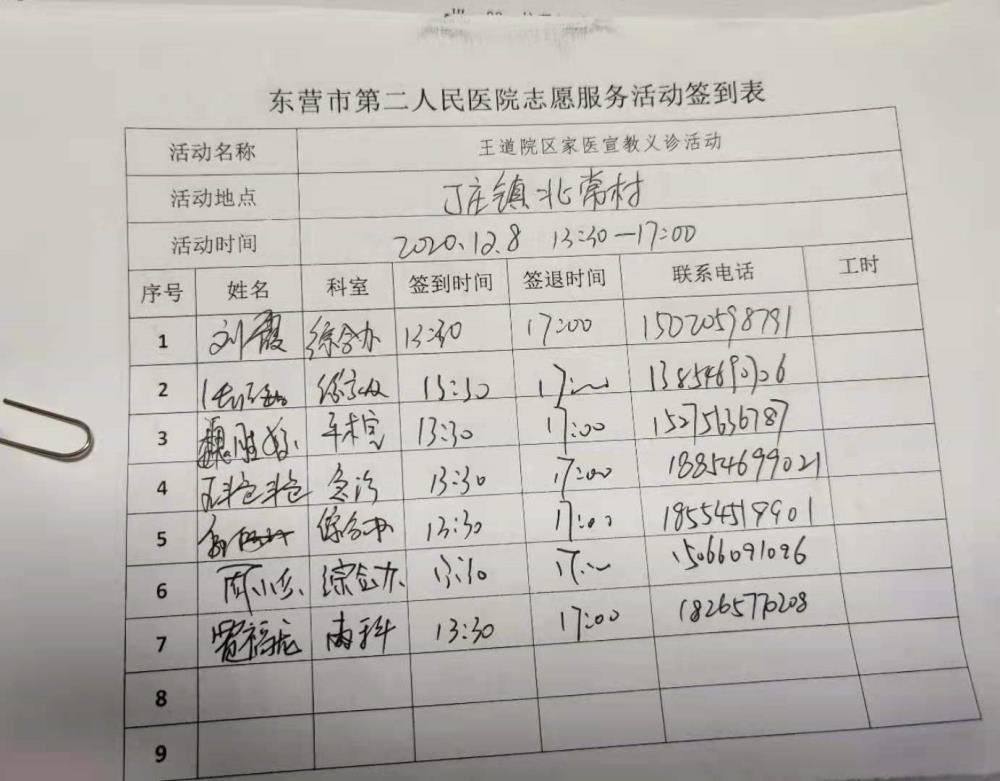 东营市第二人民医院志愿服务活动签到表
活动名称 王道院区家医宣教义诊活动
活动地点 丁庄镇北常村
活动时间 2020.12.8 13:30—17:00
序号 姓名 科室 签到时间 签退时间 联系电话 工时
1 刘霞 综合办 13:30 17:00 15020598791
2 13:30 17:00
3 13:30 17:00 15275636787
4 急诊 13:30 17:00 18854699021
5 综合办 13:30 17:00 18554519901
6 综合办 13:30 17:00 15066091096
7 内科 13:30 17:00 18265770208
8
9